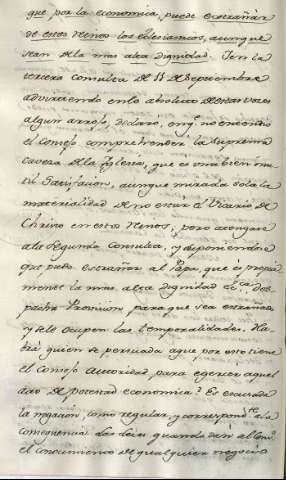 que por la economia, puede estrañar
de estos Reinos los Eclesiasticos, aunque
sean de la mas alta dignidad. I en la
tercera Consulta de 11 de Septiembre
advirtiendo en lo absoluto de estas voces
algun arrojo, declaró, en q.e no entendio
el Consejo comprender la Suprema
Caveza de la Iglesia, que es una bien inu
til Satisfacion, aunque mirada sola la
materialidad de no estar el Vicario de
Christo en estos Reinos, pero
a la Segunda Consulta, y suponiendose
que pudo estrañar al Papa, que es propia
mente la mas alta dignidad
para que sea estrañado
y se le ocupen las temporalidades. Ha
brá quien se persuada a que por esto tiene
el Consejo autoridad para egercer aquel
acto de potestad economica? Es escusada
la negacion, como regular, y correspond.te a la
consequencia. Las Leies quando dan al Cons.o
el conocimiento de qualquier negocio